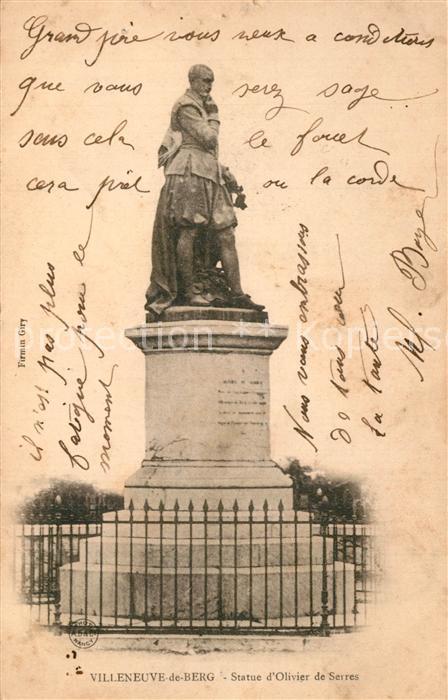 Grand père vous veux a conditions
que vous serez sage
sans cela le fouet
cera prêt ou la corde
il n'est pas plus
fatigué pour le
moment
Nous vous embrassons
de tous cœur
La tante
M. Boyer
Firmin Giry
protection Kopierschutz
NANCY
VILLENEUVE-de-BERG - Statue d'Olivier de Serres